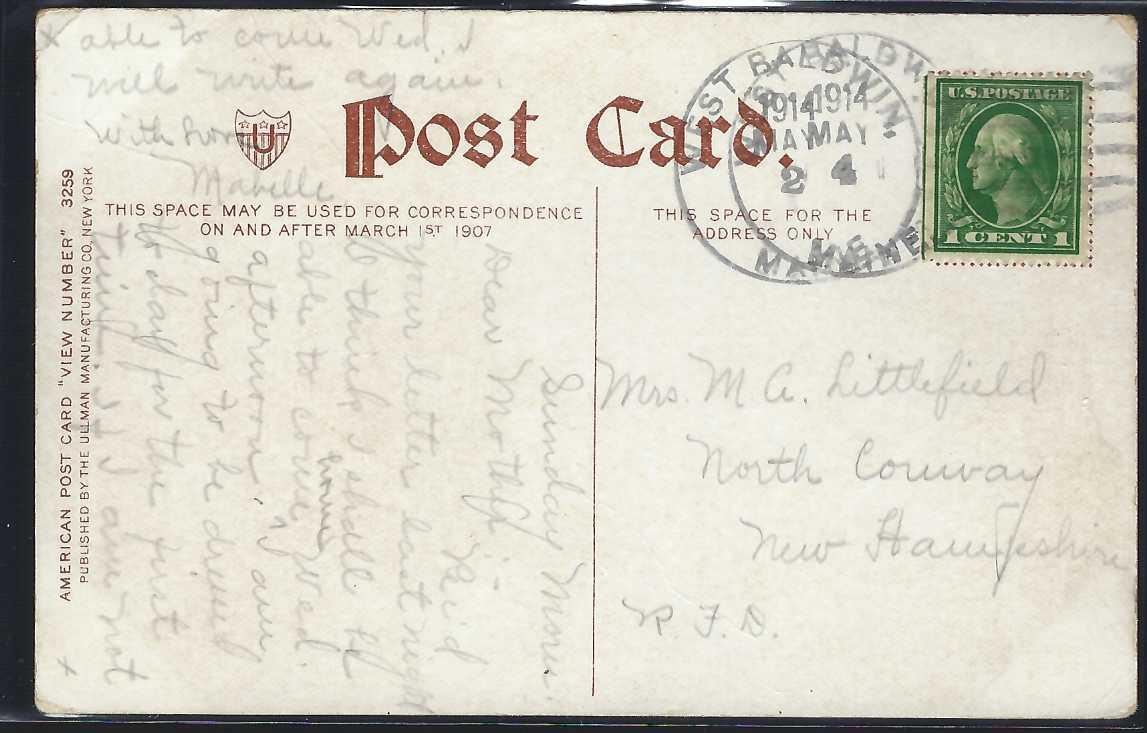 Post Card.
U
THIS SPACE MAY BE USED FOR CORRESPONDENCE
ON AND AFTER MARCH 1ST 1907
THIS SPACE FOR THE
ADDRESS ONLY
AMERICAN POST CARD "VIEW NUMBER" 3259
PUBLISHED BY THE ULLMAN MANUFACTURING CO., NEW YORK
WEST BALDWIN,
1914
MAY
2
MAINE
WEST BALDWIN,
1914
MAY
4
ME.
U.S. POSTAGE
1 CENT 1
Mrs. M A. Littlefield
North Conway
New Hampshire
R. F. D.
Sunday Morn.
Dear Mother - Recd
your letter last night
I think I shall be
able to come home Wed.
afternoon, am
going to be dressed
to day for the first
time if I am not
x
x able to come Wed. I
will write again.
With love
Mabelle